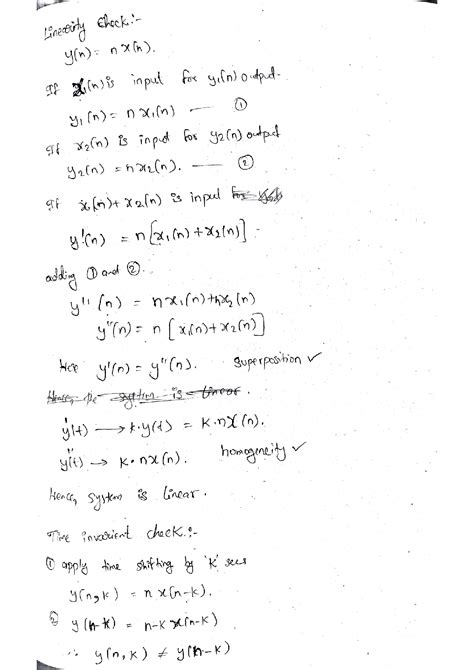 Linearity Check:-
y(n) = n x(n).
If x₁(n) is input for y₁(n) output.
y₁(n) = n x₁(n) — ①
If x₂(n) is input for y₂(n) output
y₂(n) = n x₂(n). — ②
If x₁(n) + x₂(n) is input for
y'(n) = n [x₁(n) + x₂(n)]
adding ① and ②.
y''(n) = n x₁(n) + n x₂(n)
y''(n) = n [x₁(n) + x₂(n)]
Here y'(n) = y''(n). Superposition ✓
Hence, the system is linear.
y'(t) → k·y(t) = K·n x(n).
y''(t) → K·n x(n). homogeneity ✓
Hence, system is linear.
Time invarient check:-
① apply time shifting by 'k' secs
y(n,k) = n x(n-k).
② y(n-k) = n-k x(n-k)
∴ y(n,k) ≠ y(n-k)